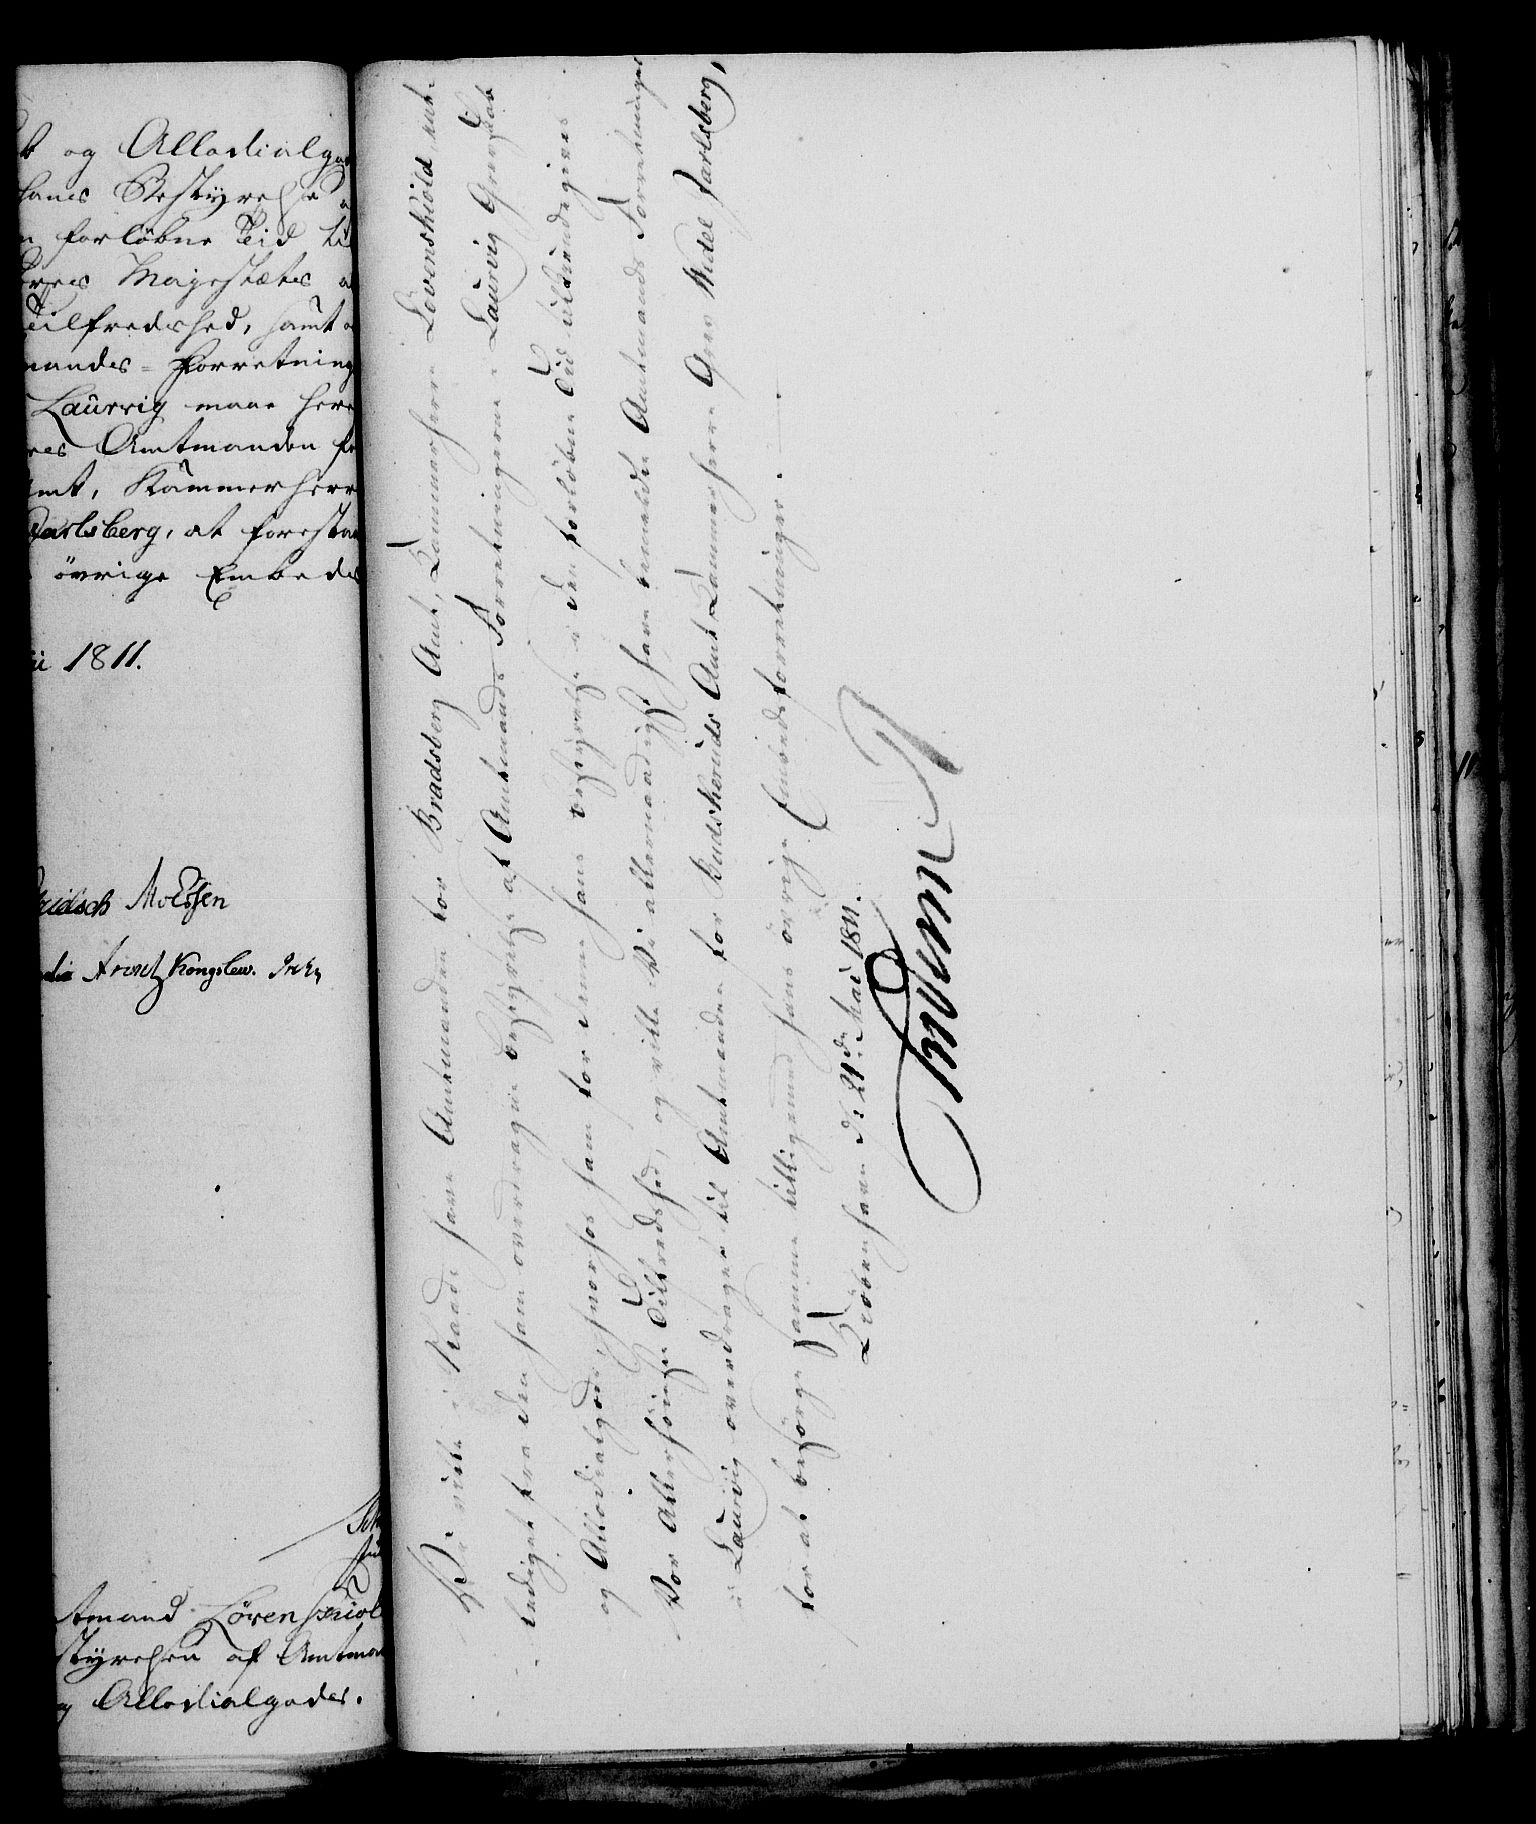 og Allodialgod
hans Bestyrelse
forløbne Tid til
Deres Majestætes
Tilfredshed, samt
mandes-Forretning
Laurvig maae here
Amtmanden for
Amt, Kammerherr
Jarlsberg, at forestaae
øvrige Embeds
1811.
Moessen
Arnet Kongslew.
Amtmand Løvenskiold
Bestyrelsen af Amtma
og Allodialgodes.
Vi ville i Naade have Amtmanden for Bradsberg Amt, Kammerherre Løvenskiold, ent-
lediget fra den ham overdragne Bestyrelse af Amtmands Forretningerne i Laurvig Grevskab
og Allodialgods, hvorhos ham for denne hans Bestyrelse i den forløbne Tid tilkiendegives
Vor Allerhøieste Tilfredshed, og ville Vi allernaadigst have bemeldte Amtmands Forretninger
i Laurvig overdragne til Amtmanden for Budskeruds Amt Kammerherre Grev Wedel Jarlsberg,
for at besørge samme tilligemed hans øvrige Embedsforretninger.
Kiøbenhavn de 21de Mai 1811.
Frederik R